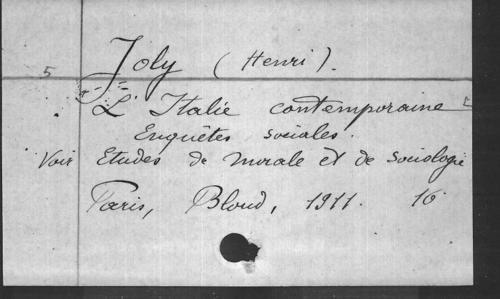 Joly (Henri).
5
L'Italie contemporaine
Enquêtes sociales.
Voir Etudes de morale et de sociologie
Paris, Bloud, 1911. 16